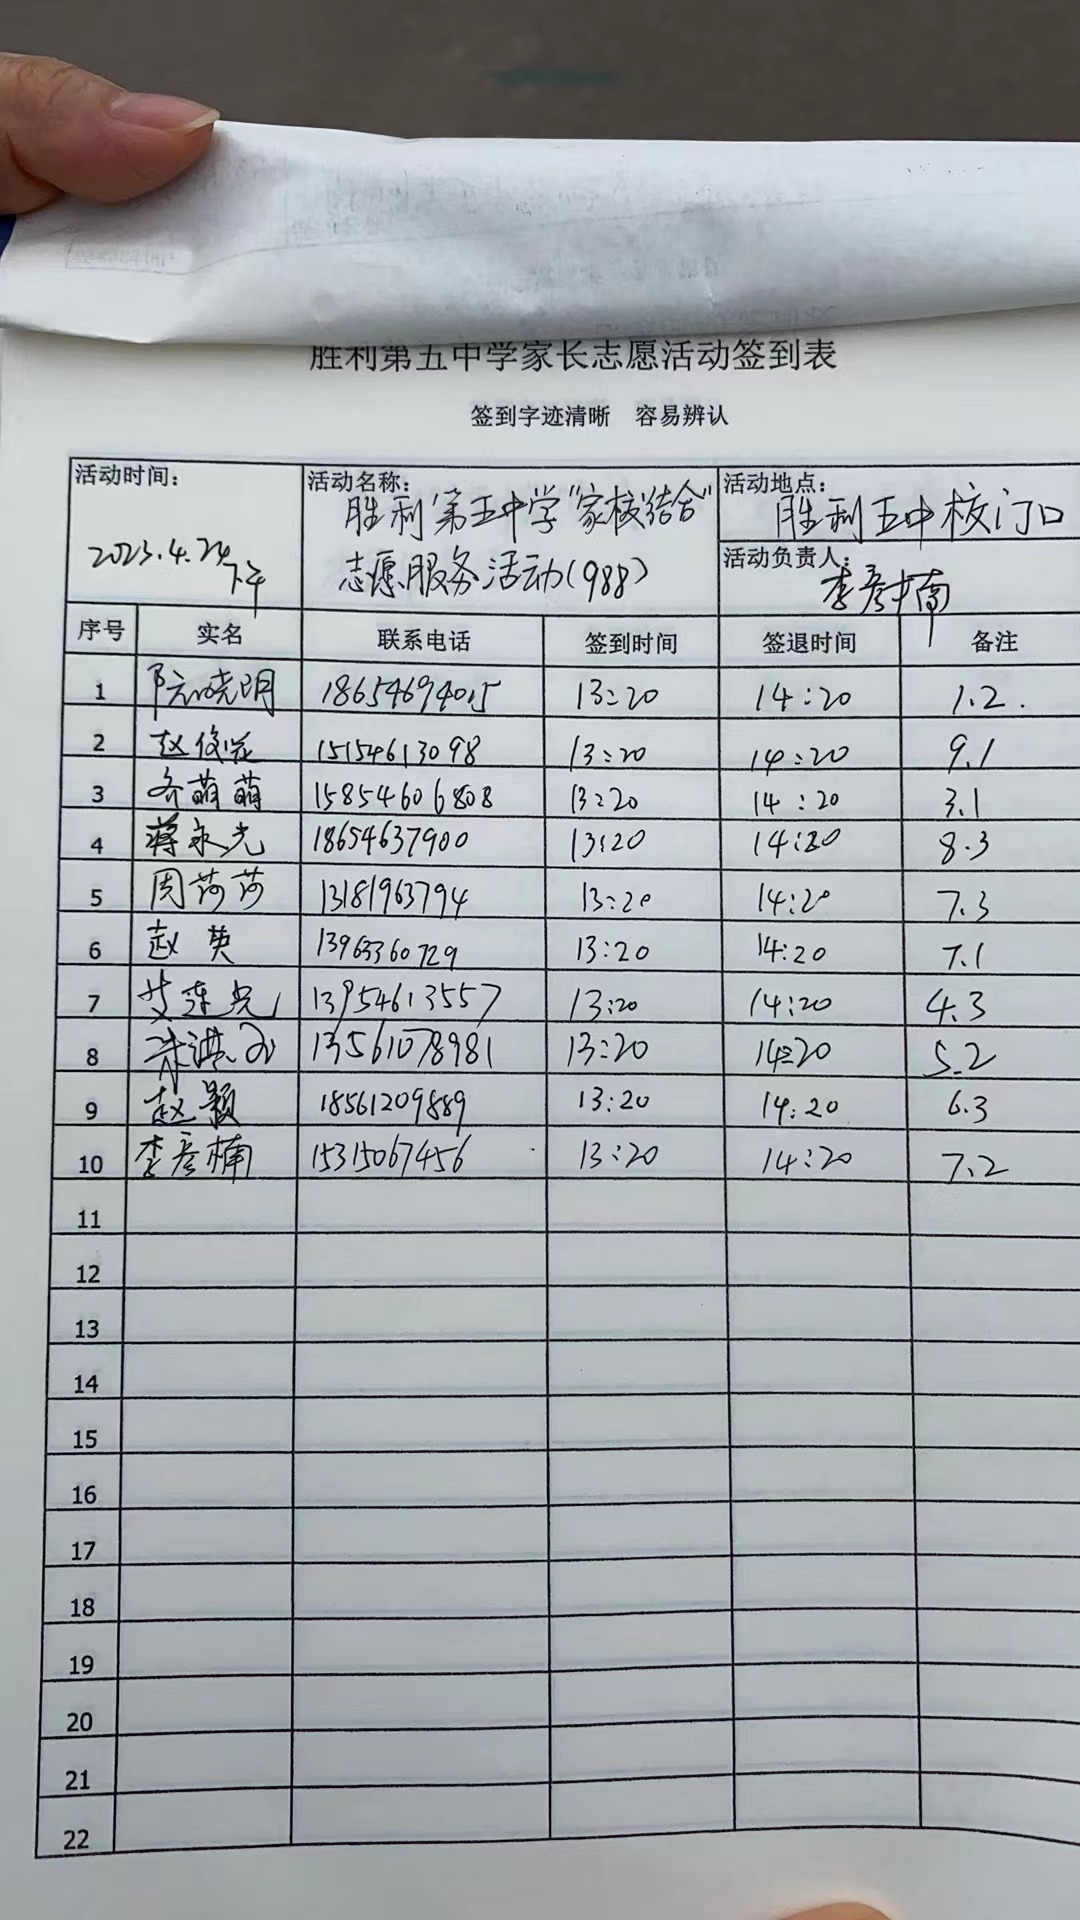 胜利第五中学家长志愿活动签到表
签到字迹清晰 容易辨认
活动时间：
2023.4.24下午
活动名称：
胜利第五中学“家校结合”
志愿服务活动（988）
活动地点：
胜利五中校门口
活动负责人：
李彦楠
序号 实名 联系电话 签到时间 签退时间 备注
1 阮晓明 18654694015 13:20 14:20 1.2.
2 赵俊 15154613098 13:20 14:20 9.1
3 齐萌萌 15854606808 13:20 14:20 3.1
4 蒋永光 18654637900 13:20 14:20 8.3
5 周莎莎 13181963794 13:20 14:20 7.3
6 赵英 13963360729 13:20 14:20 7.1
7 艾莲光 13954613557 13:20 14:20 4.3
8 13561078981 13:20 14:20 5.2
9 赵颖 18561209889 13:20 14:20 6.3
10 李彦楠 15315067456 13:20 14:20 7.2
11
12
13
14
15
16
17
18
19
20
21
22